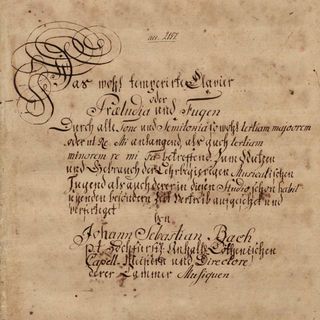 Das wohl temperirte Clavier
oder
Præludia und Fugen
Durch alle Tone und Semitonia so wohl tertiam majorem
oder ut Re Mi anlangend, als auch tertiam
minorem re mi fa betreffend Zum Nutzen
und Gebrauch der Lehrbegierigen Musicalischen
Jugend als auch derer in diesen Studio schon habil
seyenden besondern Zeit Vertreib aufgesetzet und
verfertget
von
Johann Sebastian Bach
pt Hochfürstl. Anhalt Cöthenischen
Capell Meistern und Directore
derer Cammer Musiquen